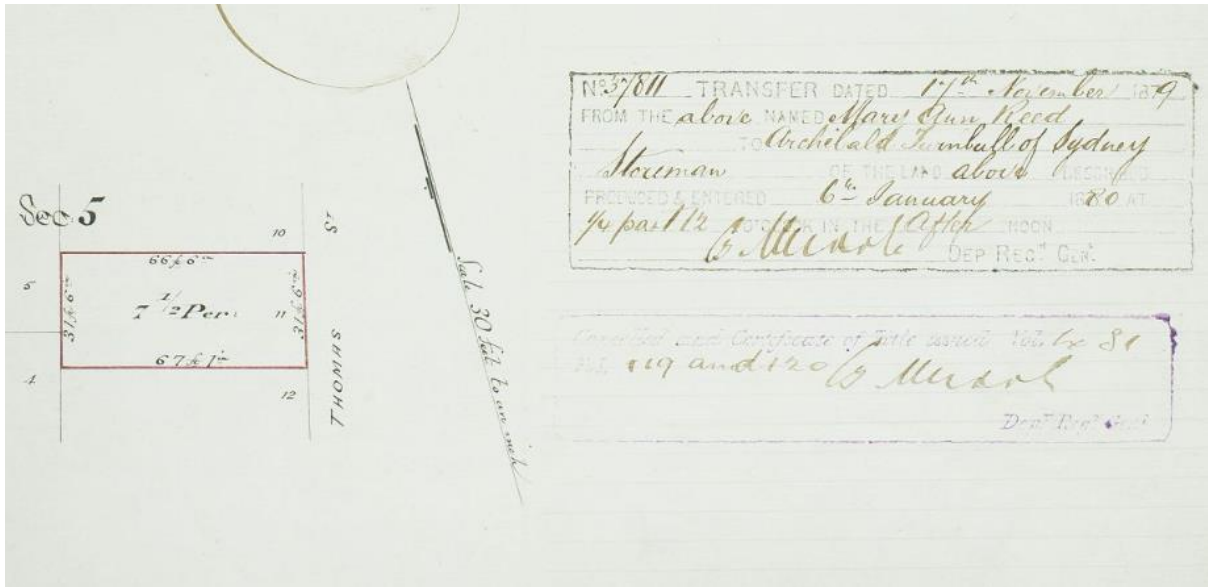 Sec. 5
10
ST
5
66 ft 6 in
7 1/2 Per.
11
31 ft 6 in
31 ft 6 in
67 ft 1 in
4
12
THOMAS
Scale 30 feet to an inch
No 37811 TRANSFER DATED 17th November 1879
FROM THE above NAMED Mary Ann Reed
TO Archibald Turnbull of Sydney
Storeman OF THE LAND above DESCRIBED
PRODUCED & ENTERED 6th January 1880 AT
1/4 past 12 O'CLOCK IN THE After NOON
DEP REGR GENL
Cancelled and Certificate of Title issued Vol.
119 and 120
Depy Regr Genl